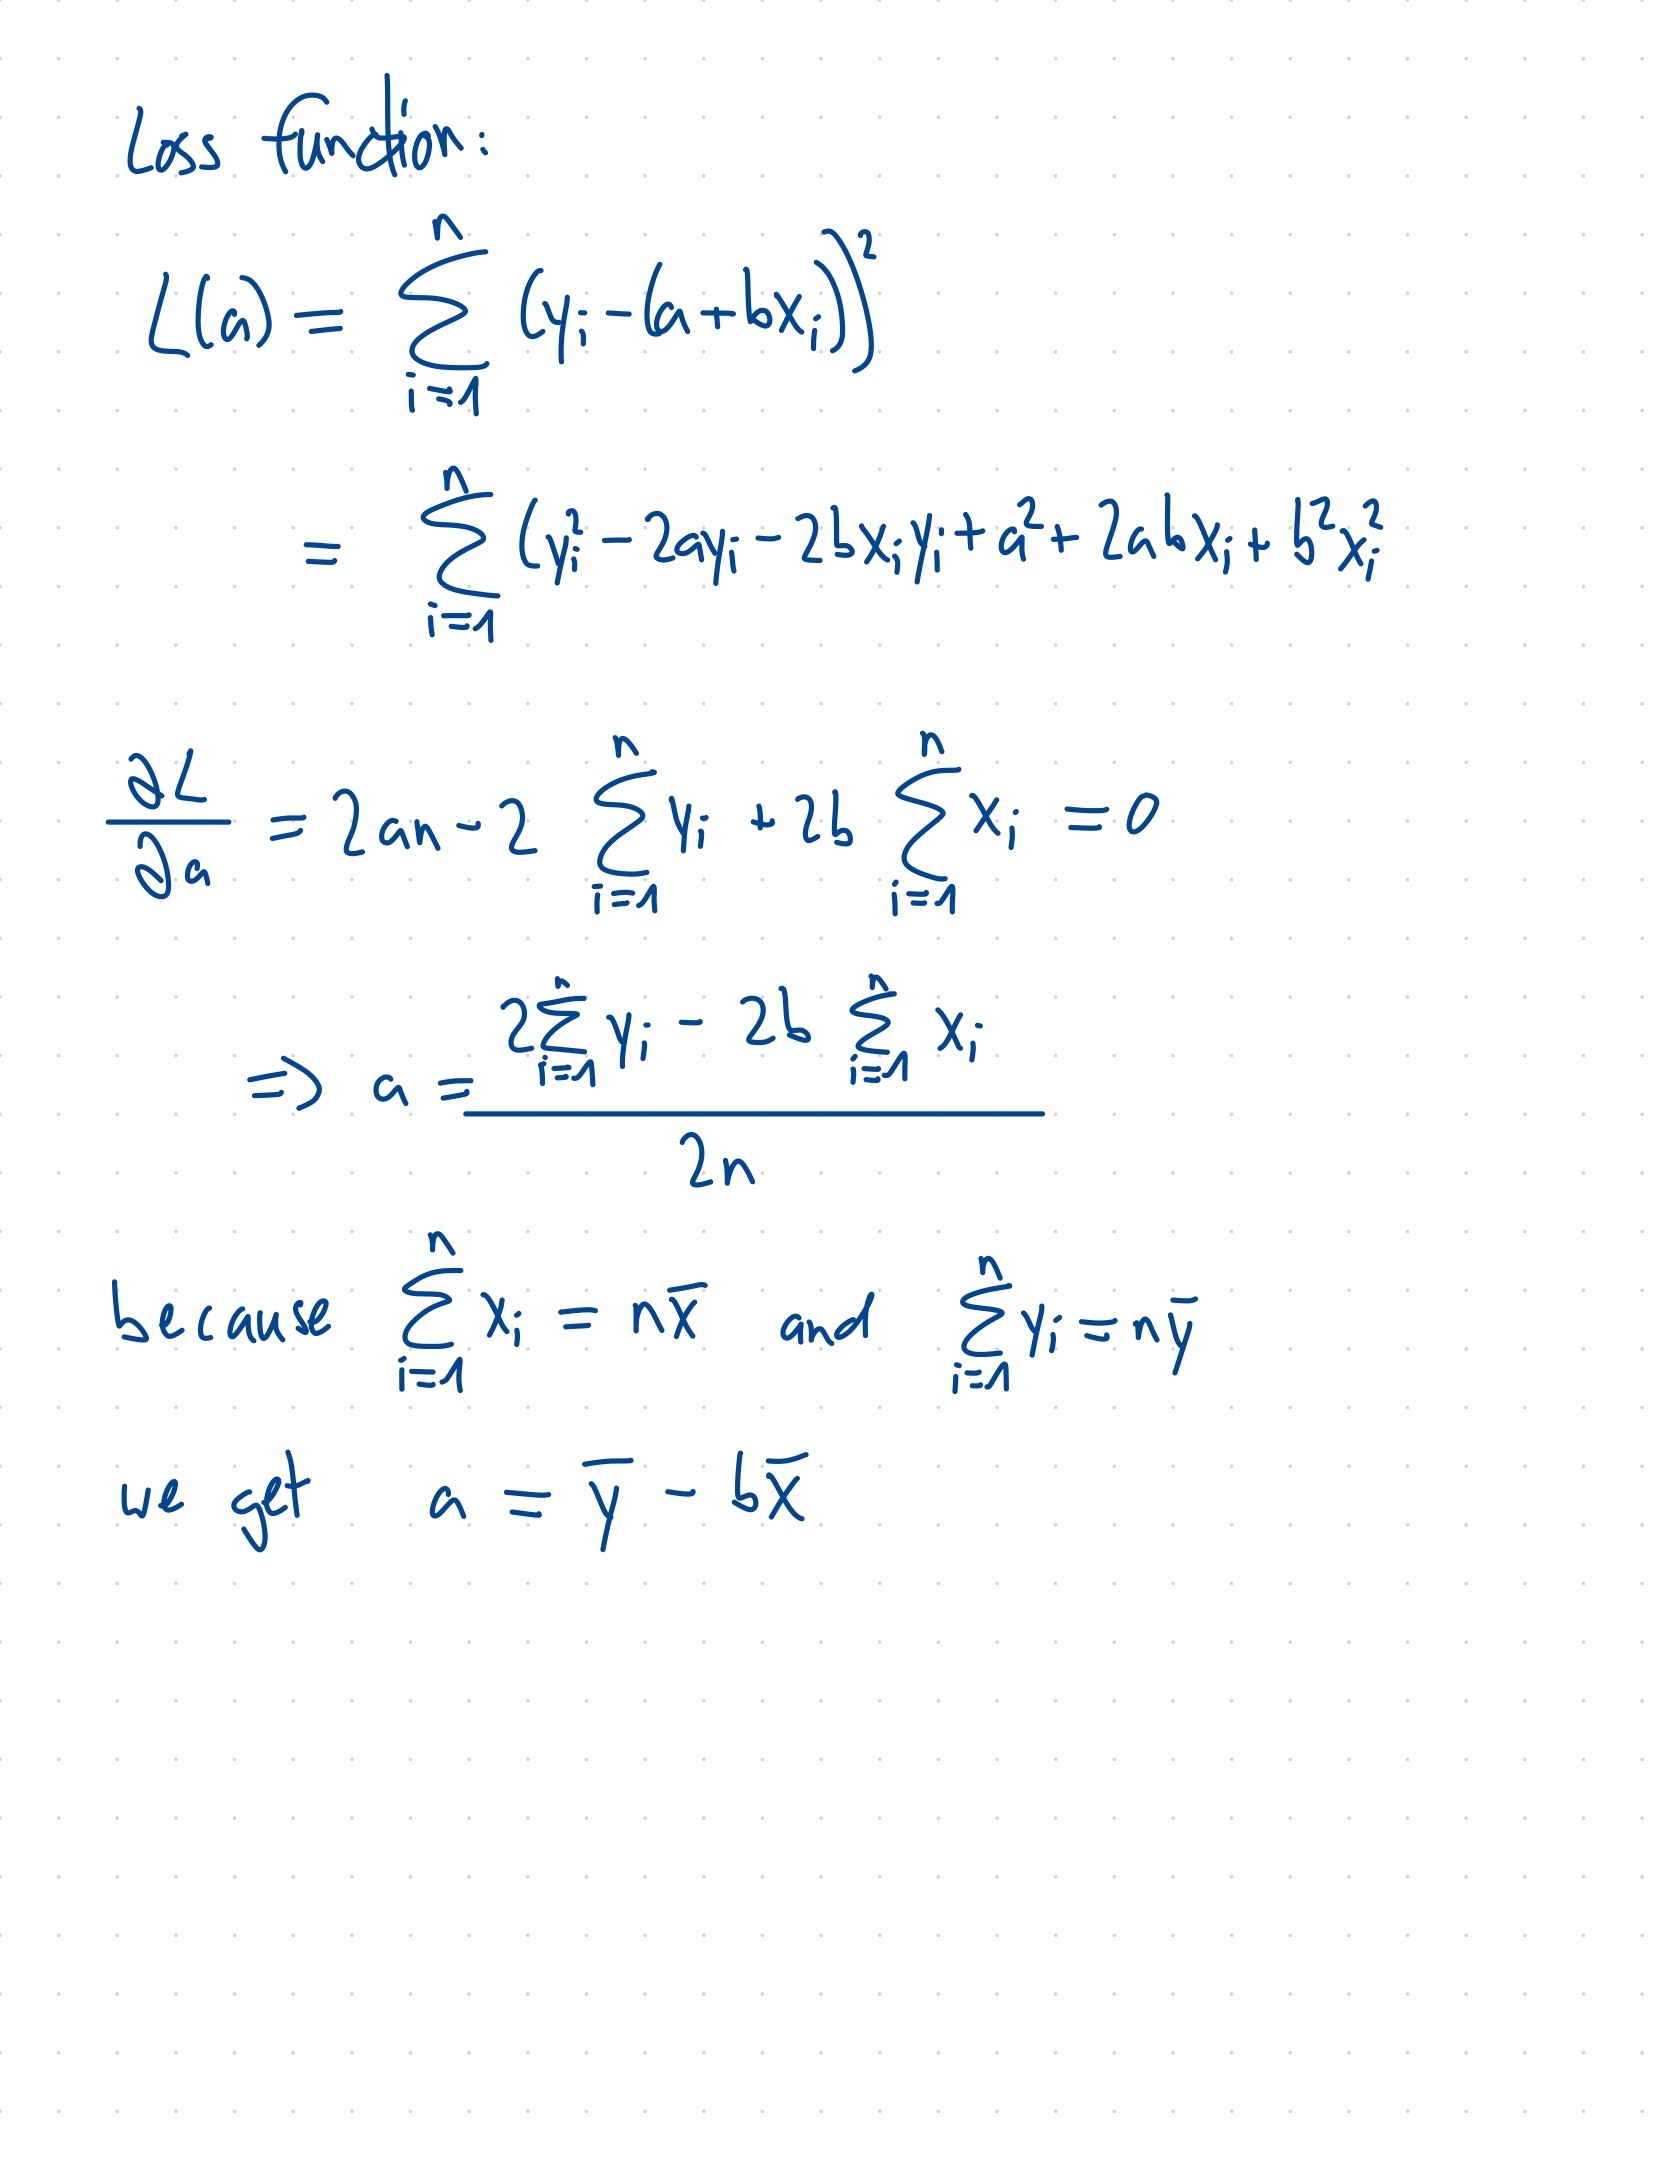 Loss function:
L(a) = \sum_{i=1}^{n} (y_i - (a + bx_i))^2
= \sum_{i=1}^{n} (y_i^2 - 2ay_i - 2bx_iy_i + a^2 + 2abx_i + b^2x_i^2
\frac{\partial L}{\partial a} = 2an - 2 \sum_{i=1}^{n} y_i + 2b \sum_{i=1}^{n} x_i = 0
=> a = \frac{2\sum_{i=1}^{n} y_i - 2b \sum_{i=1}^{n} x_i}{2n}
because \sum_{i=1}^{n} x_i = n\overline{x} and \sum_{i=1}^{n} y_i = n\overline{y}
we get a = \overline{y} - b\overline{x}